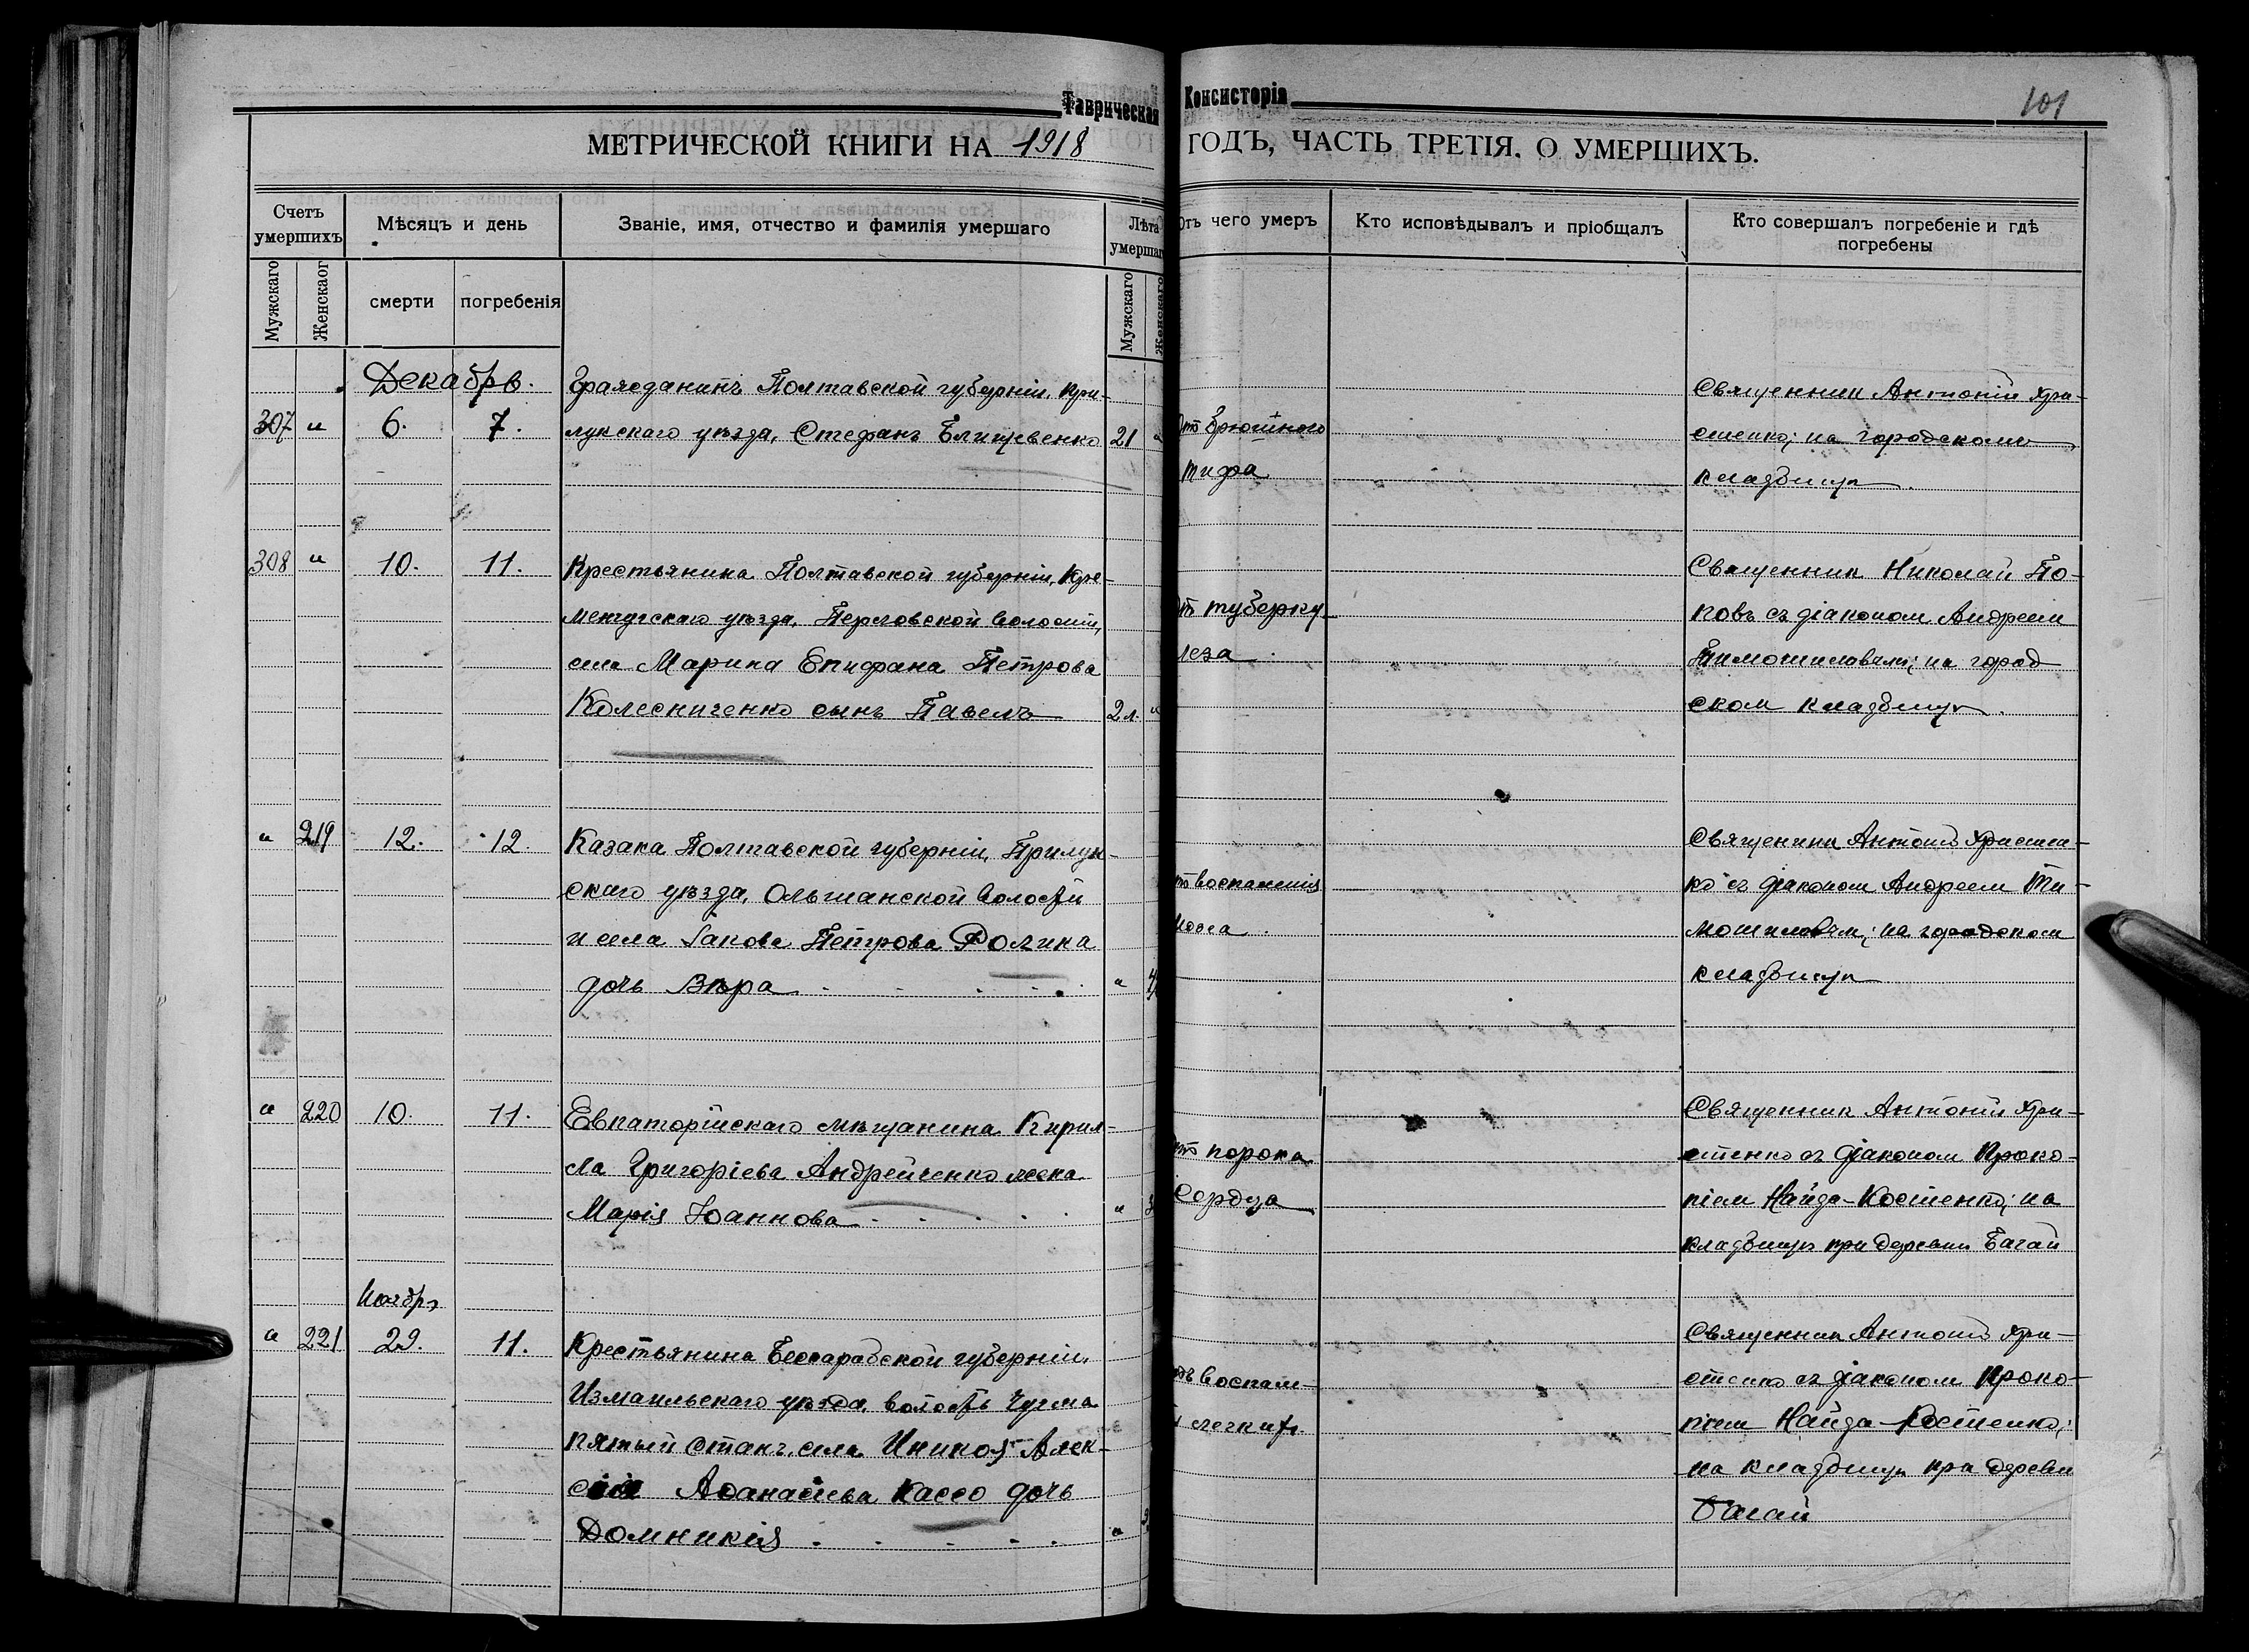 Таврическая Консисторія
101
МЕТРИЧЕСКОЙ КНИГИ НА 1918 ГОДЪ, ЧАСТЬ ТРЕТІЯ. О УМЕРШИХЪ.
Счетъ умершихъ
Мѣсяцъ и день
Званіе, имя, отчество и фамилія умершаго
Лѣта умершаг
Отъ чего умеръ
Кто исповѣдывалъ и пріобщалъ
Кто совершалъ погребеніе и гдѣ погребены
Мужскаго
Женскаог
смерти
погребенія
Мужскаго
Женскаго
Декабрь.
307 " 6. 7.
Гражданинъ Полтавской губерніи, При-
лукскаго уѣзда, Стефанъ Елищевенко 21 "
отъ брюшного
тифа
Священник Антоній Хри-
стенко; на городскомъ
кладбищѣ.
308 " 10. 11.
Крестьянина Полтавской губерніи, Кре-
менчугскаго уѣзда, волости,
села Марина Епифана Петрова
Колесниченко сынъ Павелъ 2 л. "
отъ туберку-
леза.
Священник Николай По-
повъ съ діаконом Андреем
на город
ском кладбищѣ.
" 219 12. 12.
Казака Полтавской губерніи, Прилук-
скаго уѣзда, Ольшанской волости
и села Іакова Петрова
дочь Вѣра " 4
отъ воспаленія
мозга.
Священник Антоній Христен-
ко съ діаконом Андреем Ти-
на городском
кладбищѣ
" 220 10. 11.
Евпаторійскаго мѣщанина Кирил-
ла Григоріева Андрейченко жена
Марія Іоаннова " 3
отъ порока
Сердца
Священник Антоній Хри-
стенко съ діаконом Проко-
піем Найда-Костенко; на
кладбищѣ при деревни Багай
Ноябрь
" 221 29. 11.
Крестьянина Бессарабской губерніи,
Измаильскаго уѣзда, волость Чушма
пятый станъ, села Алек-
сія Афанасіева Кассо дочь
Домникія "
отъ воспале-
легкихъ.
Священник Антоній Хри-
стенко съ діаконом Проко-
піем Найда-Костенко;
на кладбищѣ при деревни
Багай